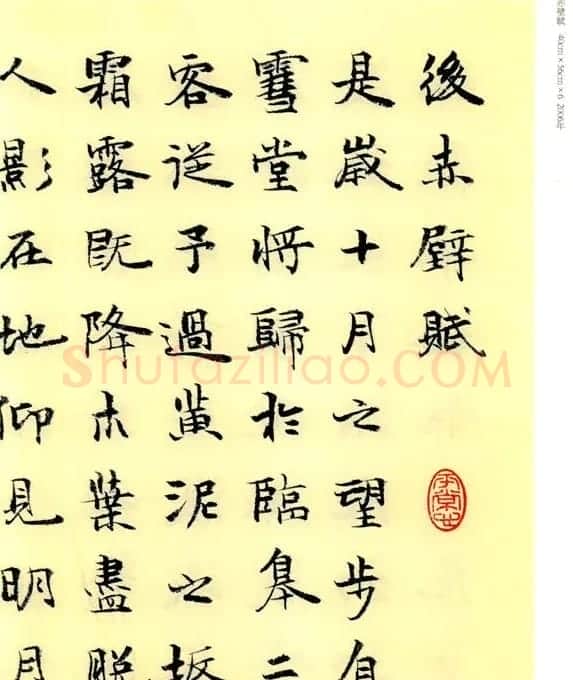 壁賦 46cm×36cm×6 2006年
後赤壁賦
是歲十月之望步自
雪堂將歸於臨皋二
客從予過黃泥之坂
霜露既降木葉盡脫
人影在地仰見明月
Shufaziliao.COM